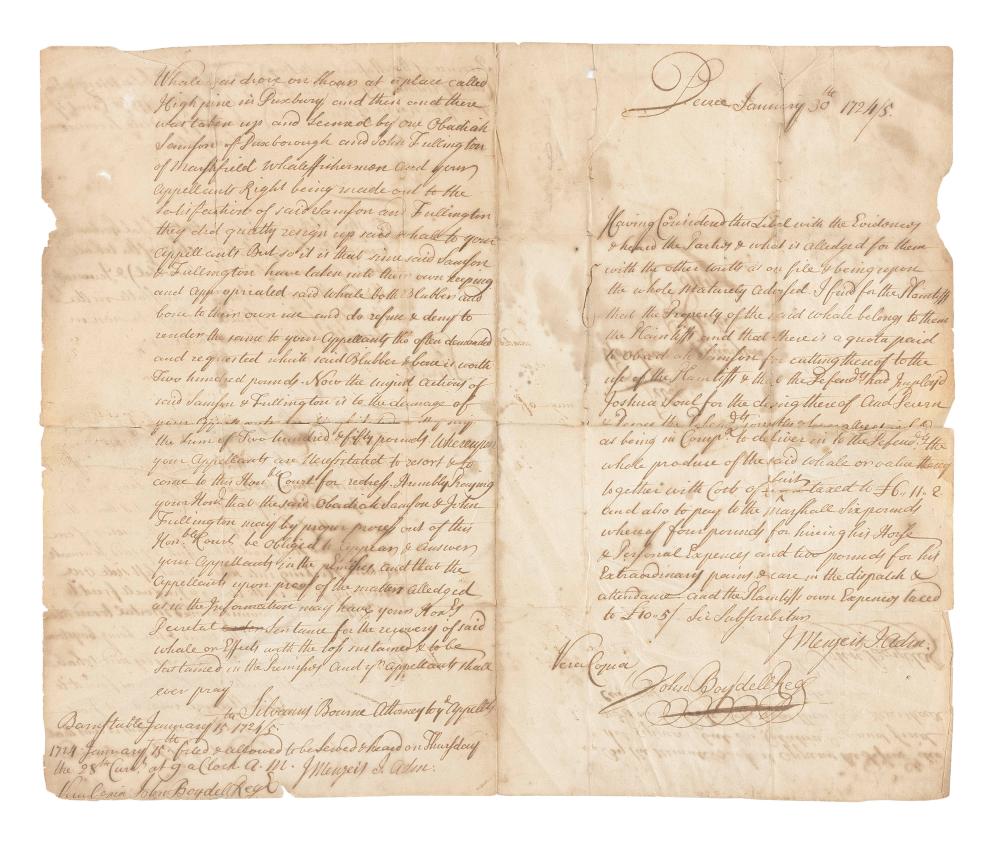 Whale was drove on Shoar at a place called
High pine in Duxbury and then and there
was taken up and Secured by one Obadiah
Samson of Duxborough and John Fullington
of Marshfield Whalefishermen and your
Appellants Right being made out to the
satisfaction of said Samson and Fullington
they did quietly resign up said whale to your
Appellants But so it is that since said Samson
& Fullington have taken into their own keeping
and appropriated said Whale both Blubber and
bone to their own use and do refuse & deny to
render the same to your Appellants tho often demanded
and requested which said Blubber & bone is worth
Two hundred pounds. Now the unjust Actions of
said Samson & Fullington is to the damage of
your Appellants
the Sum of Two hundred & fifty pounds Whereupon
your Appellants are Necessitated to resort & to
come to this Honble Court for redress. Humbly Praying
your Honr that the said Obadiah Samson & John
Fullington may by proper process out of this
Honble Court be obliged to Appear & Answer
your Appellants in the premises and that the
Appellants upon proof of the matters Alledged
as in the Information may have your Honrs
Decretal Sentance for the recovery of said
Whale or Effects with the loss sustained & to be
Sustained in the Premises And yr Appellants shall
ever pray
Silvanus Bourne Attorney to ye Appellts
Barnstable January 15 1724/5
1724 January 15th filed & allowed to be Served & heard on Thursday
the 28th Currt at 9 a Clock A. M. J Menzeis J. Adm.
Vera Copia John Boydell Regr
Decree January 30th 1724/5.
Having Considered this Libel with the Evidences
& heard the Parties & what is alledged for them
with the other writts as on file & being upon
the whole Maturely Advised. I find for the Plaintiffs
that the Property of the said Whale belong to them
the Plaintiffs and that there is a quota paid
to Obadiah Samson for cutting thereof to the
use of the Plaintiffs & that the Defendts had Imployd
Joshua Soul for the doing thereof And Decern
& Decree the Defendts
as being in Compa to deliver in to the the
whole produce of the said Whale or value thereof
together with Costs of Suit taxed to £6..11..2
and also to pay to the Marshall Six pounds
whereof four pounds for hireing his Horse
& Personal Expences and two pounds for his
Extraordinary pains & care in the dispatch &
attendance and the Plaintiffs own Expences taxed
to £10..5/ Sic Subscribitur
J Menzeis J. Adm.
Vera Copia
John Boydell Regr